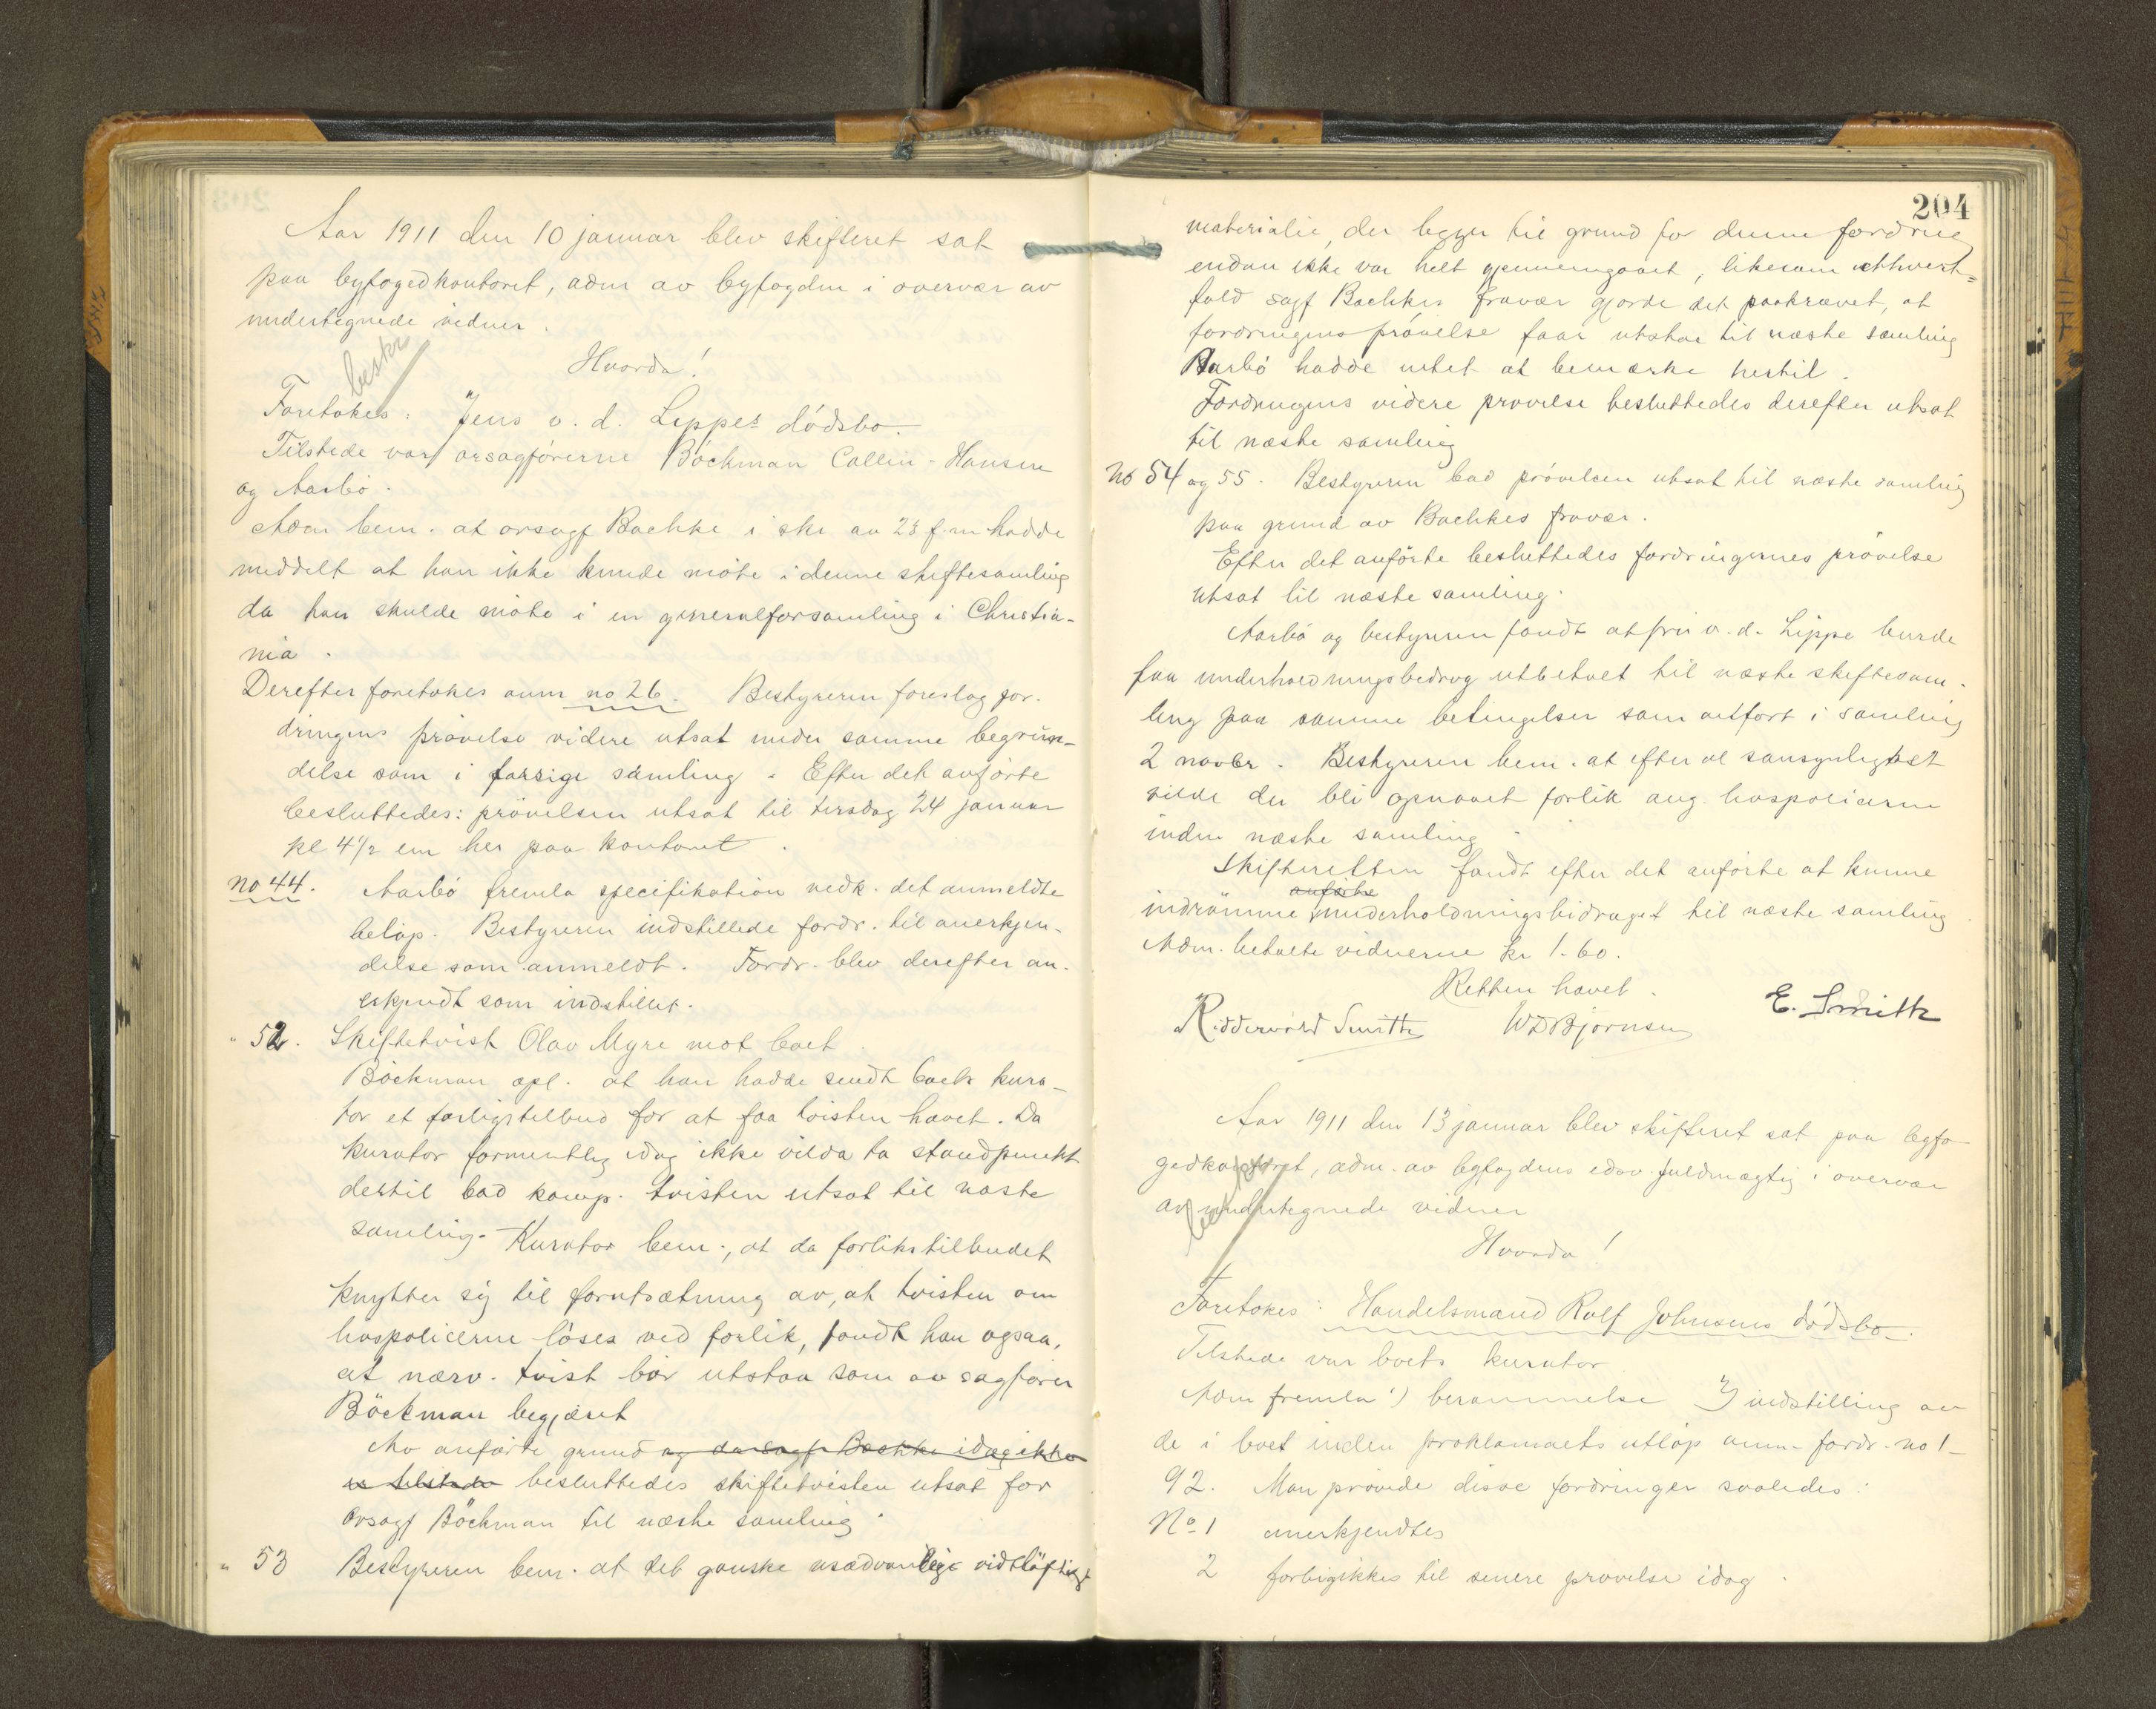 Aar 1911 den 10 januar blev skifteret sat
paa byfogedkontoret, adm av byfogden i overvær av
undertegnede vidner.
beskr
Hvorda!
Foretokes: Jens v. d. Lippes dödsbo.
Tilstede var orsagförerne Böckman Collin-Hansen
og Aarbö.
Adm bem. at orsagf Bachke i skr av 23 f.m hadde
meddelt at han ikke kunde möte i denne skiftesamling
da han skulde möte i en generalforsamling i Christia-
nia.
Derefter foretokes anm no 26. Bestyreren foreslog for-
dringens prövelse videre utsat under samme begrun-
delse som i forrige samling. Efter det anförte
besluttedes: prövelsen utsat til tirsdag 24 januar
kl 4½ em her paa kontoret.
no 44. Aarbö fremla specifikation vedk. det anmeldte
belöp. Bestyreren indstillede fordr. til anerkjen-
delse som anmeldt. Fordr. blev derefter an-
erkjendt som indstillet.
" 52. Skiftetvist Olav Myre mot boet
Böckman opl. at han hadde sendt boets kura-
tor et forligstilbud for at faa tvisten hævet. Da
kurator formentlig idag ikke vilde ta standpunkt
dertil bad komp. tvisten utsat til næste
samling. Kurator bem., at da forlikstilbudet
knytter sig til forutsætning av, at tvisten om
hospolicerne löses ved forlik, fandt han ogsaa,
at nærv. tvist bör utstaa som av sagförer
Böckman begjæret
Av anförte grund og da sagf. Bachke idag ikke
er tilstede besluttedes skiftetvisten utsat for
orsagf Böckman til næste samling.
" 53 Bestyreren bem. at det ganske usædvanlige vidtlöftige
204
materialie, der ligger til grund for denne fordring
endnu ikke var helt gjennemgaaet, likesom ethvert-
fald sagf Bachkes fravær gjorde det paakrævet, at
fordringens prövelse faar utstaa til næste samling
Aarbö hadde intet at bemærke hertil.
Fordringens videre prövelse besluttedes derefter utsat
til næste samling
No 54 og 55. Bestyreren bad prövelsen utsat til næste samling
paa grund av Bachkes fravær.
Efter det anförte besluttedes fordringernes prövelse
utsat til næste samling.
Aarbö og bestyreren fandt at fru v. d. Lippe burde
faa underholdningsbidrag utbetalt til næste skiftesam-
ling paa samme betingelser som anfört i samling
2 novbr. Bestyreren bem. at efter al sansynlighet
vilde der bli opnaaet forlik ang. hospolicerne
inden næste samling.
Skifteretten fandt efter det anförte at kunne
anförte
indrömme underholdningsbidraget til næste samling.
Adm. betalte vidnerne kr 1.60.
Retten hævet.
Riddervold Smith WDBjörnsen E. Smith
Aar 1911 den 13 januar blev skifteret sat paa byfo-
gedkontoret, adm. av byfogdens edsv. fuldmægtig i overvær
av undertegnede vidner
Hvorda!
Foretokes: Handelsmand Rolf Johnsens dödsbo.
Tilstede var boets kurator
Adm fremla 1) berammelse 2) indstilling av
de i boet inden proklamaets utlöp anm. fordr. no 1-
92. Man prövede disse fordringer saaledes:
No 1 anerkjendtes
2 forbigikkes til senere prövelse idag.